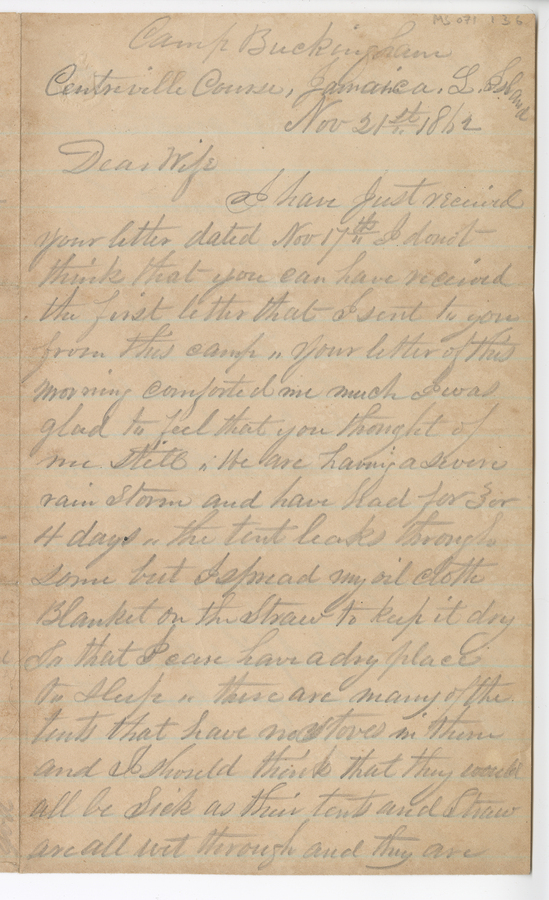 Ms 071 136
Camp Buckingham
Centreville Course, Jamaica. L. Island
Nov 21st 1862
Dear Wife
I have Just received
your letter dated Nov 17th I do not
think that you can have received
the first letter that I sent to you
from this camp " your letter of this
morning comforted me much I was
glad to feel that you thought of
me still " We are having a severe
rain storm and have had for 3 or
4 days " the tent leaks through
some but I spread my oil cloth
Blanket on the Straw to keep it dry
So that I can have a dry place
to sleep " there are many of the
tents that have no stoves in them
and I should think that they would
all be Sick as their tents and Straw
are all wet through and they are